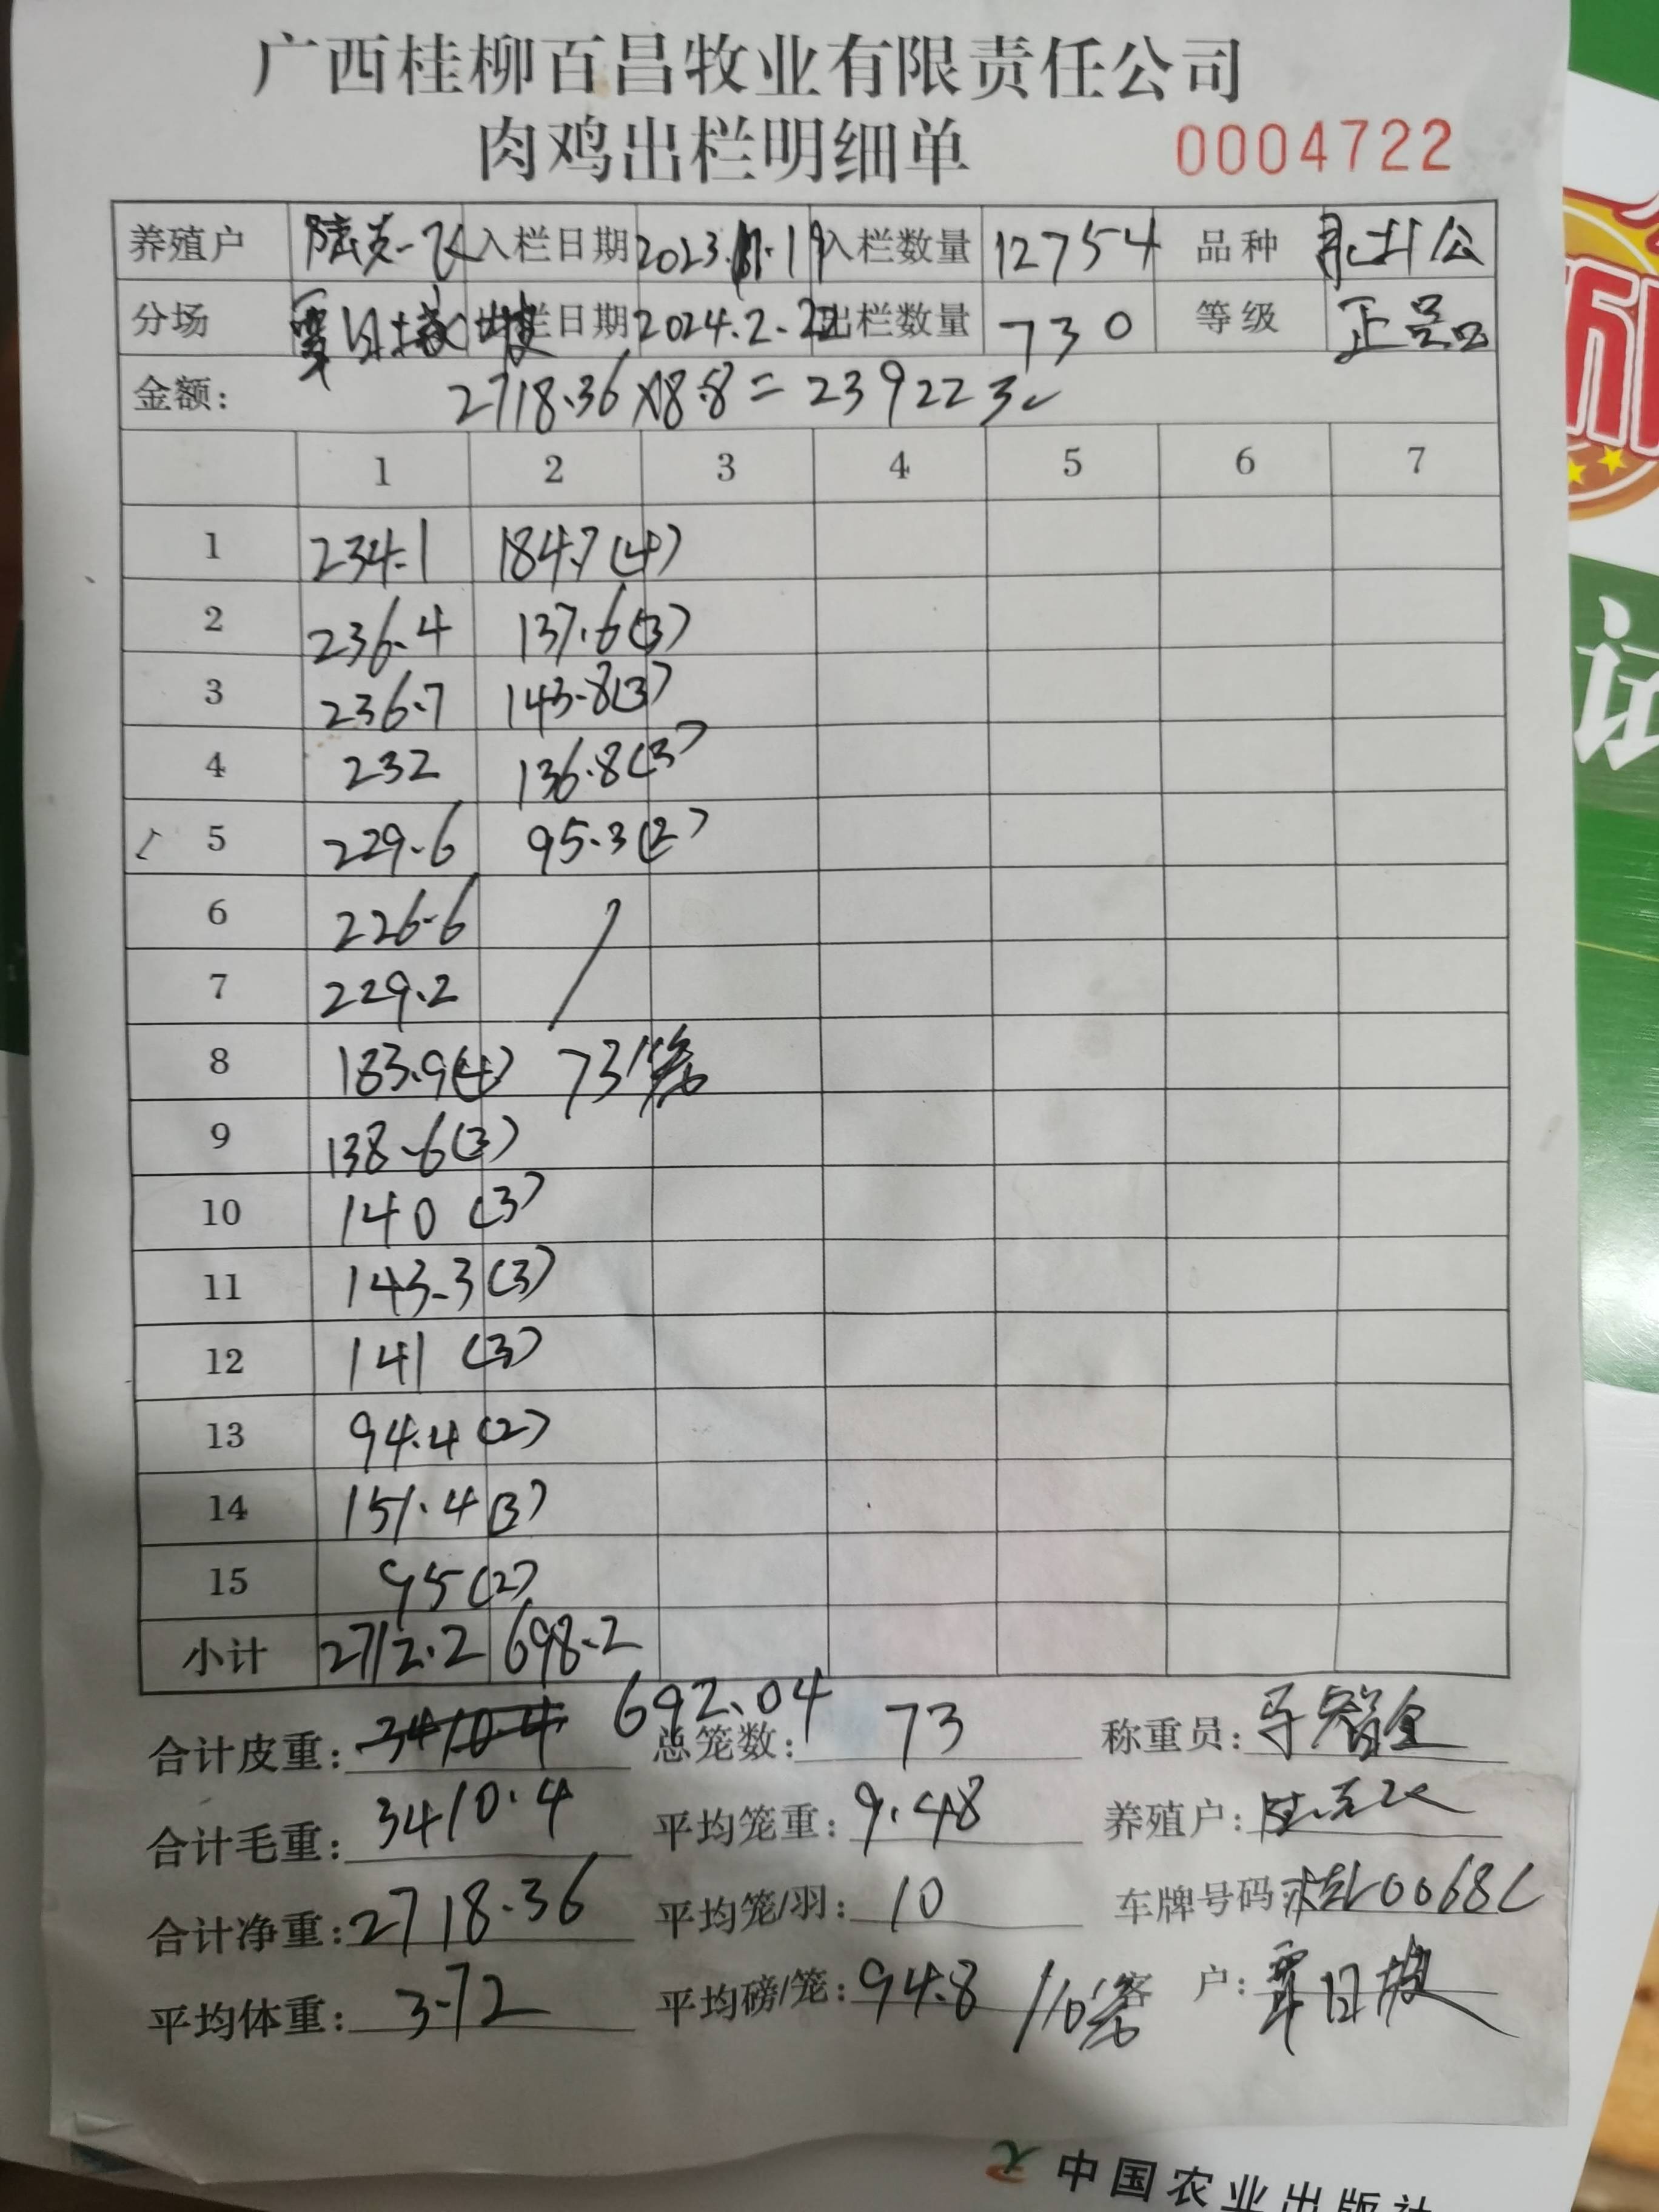 广西桂柳百昌牧业有限责任公司
肉鸡出栏明细单 0004722
养殖户 入栏日期 2023.11.19 入栏数量 12754 品种 公
分场 出栏日期 2024.2.22 出栏数量 730 等级 正品
金额: 2718.36×8.8=239223
1 2 3 4 5 6 7
1 234.1 184.7(4)
2 236.4 137.6(3)
3 236.7 143.8(3)
4 232 136.8(3)
5 229.6 95.3(2)
6 226.6
7 229.2
8 183.9(4) 73笼
9 138.6(3)
10 140(3)
11 143.3(3)
12 141(3)
13 94.4(2)
14 151.4(3)
15 95(2)
小计 2712.2 698.2
合计皮重: 3410.4 692.04 总笼数: 73 称重员:
合计毛重: 3410.4 平均笼重: 9.48 养殖户:
合计净重: 2718.36 平均笼/羽: 10 车牌号码: 桂L0068C
平均体重: 3.72 平均磅/笼: 94.8 /10笼 客户: 覃日坡
中国农业出版社
试